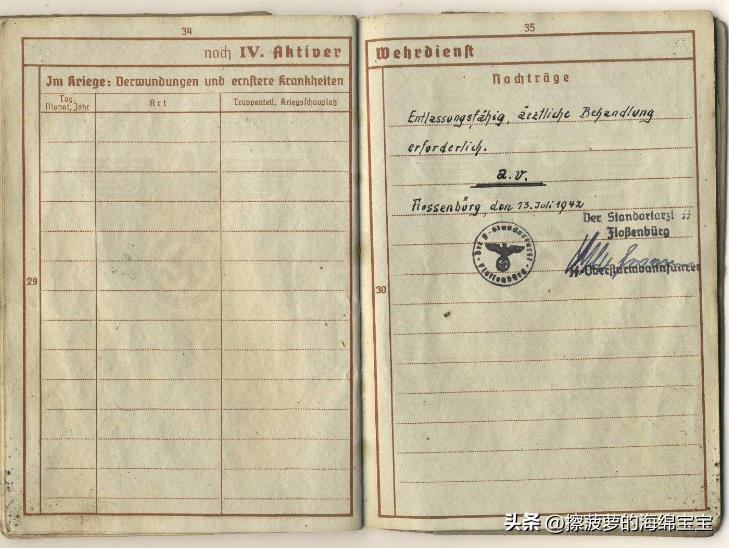 34
noch IV. Aktiver
Im Kriege: Verwundungen und ernstere Krankheiten
Tag, Monat, Jahr
Art
Truppenteil, Kriegsschauplatz
29
35
Wehrdienst
Nachträge
Entlassungsfähig, ärztliche Behandlung
erforderlich.
a.v.
Flossenbürg, den 13. Juli 1942
Der Standortarzt ᛋᛋ
Floßenbürg
ᛋᛋ-Obersturmbannführer
30
头条 @擦菠萝的海绵宝宝